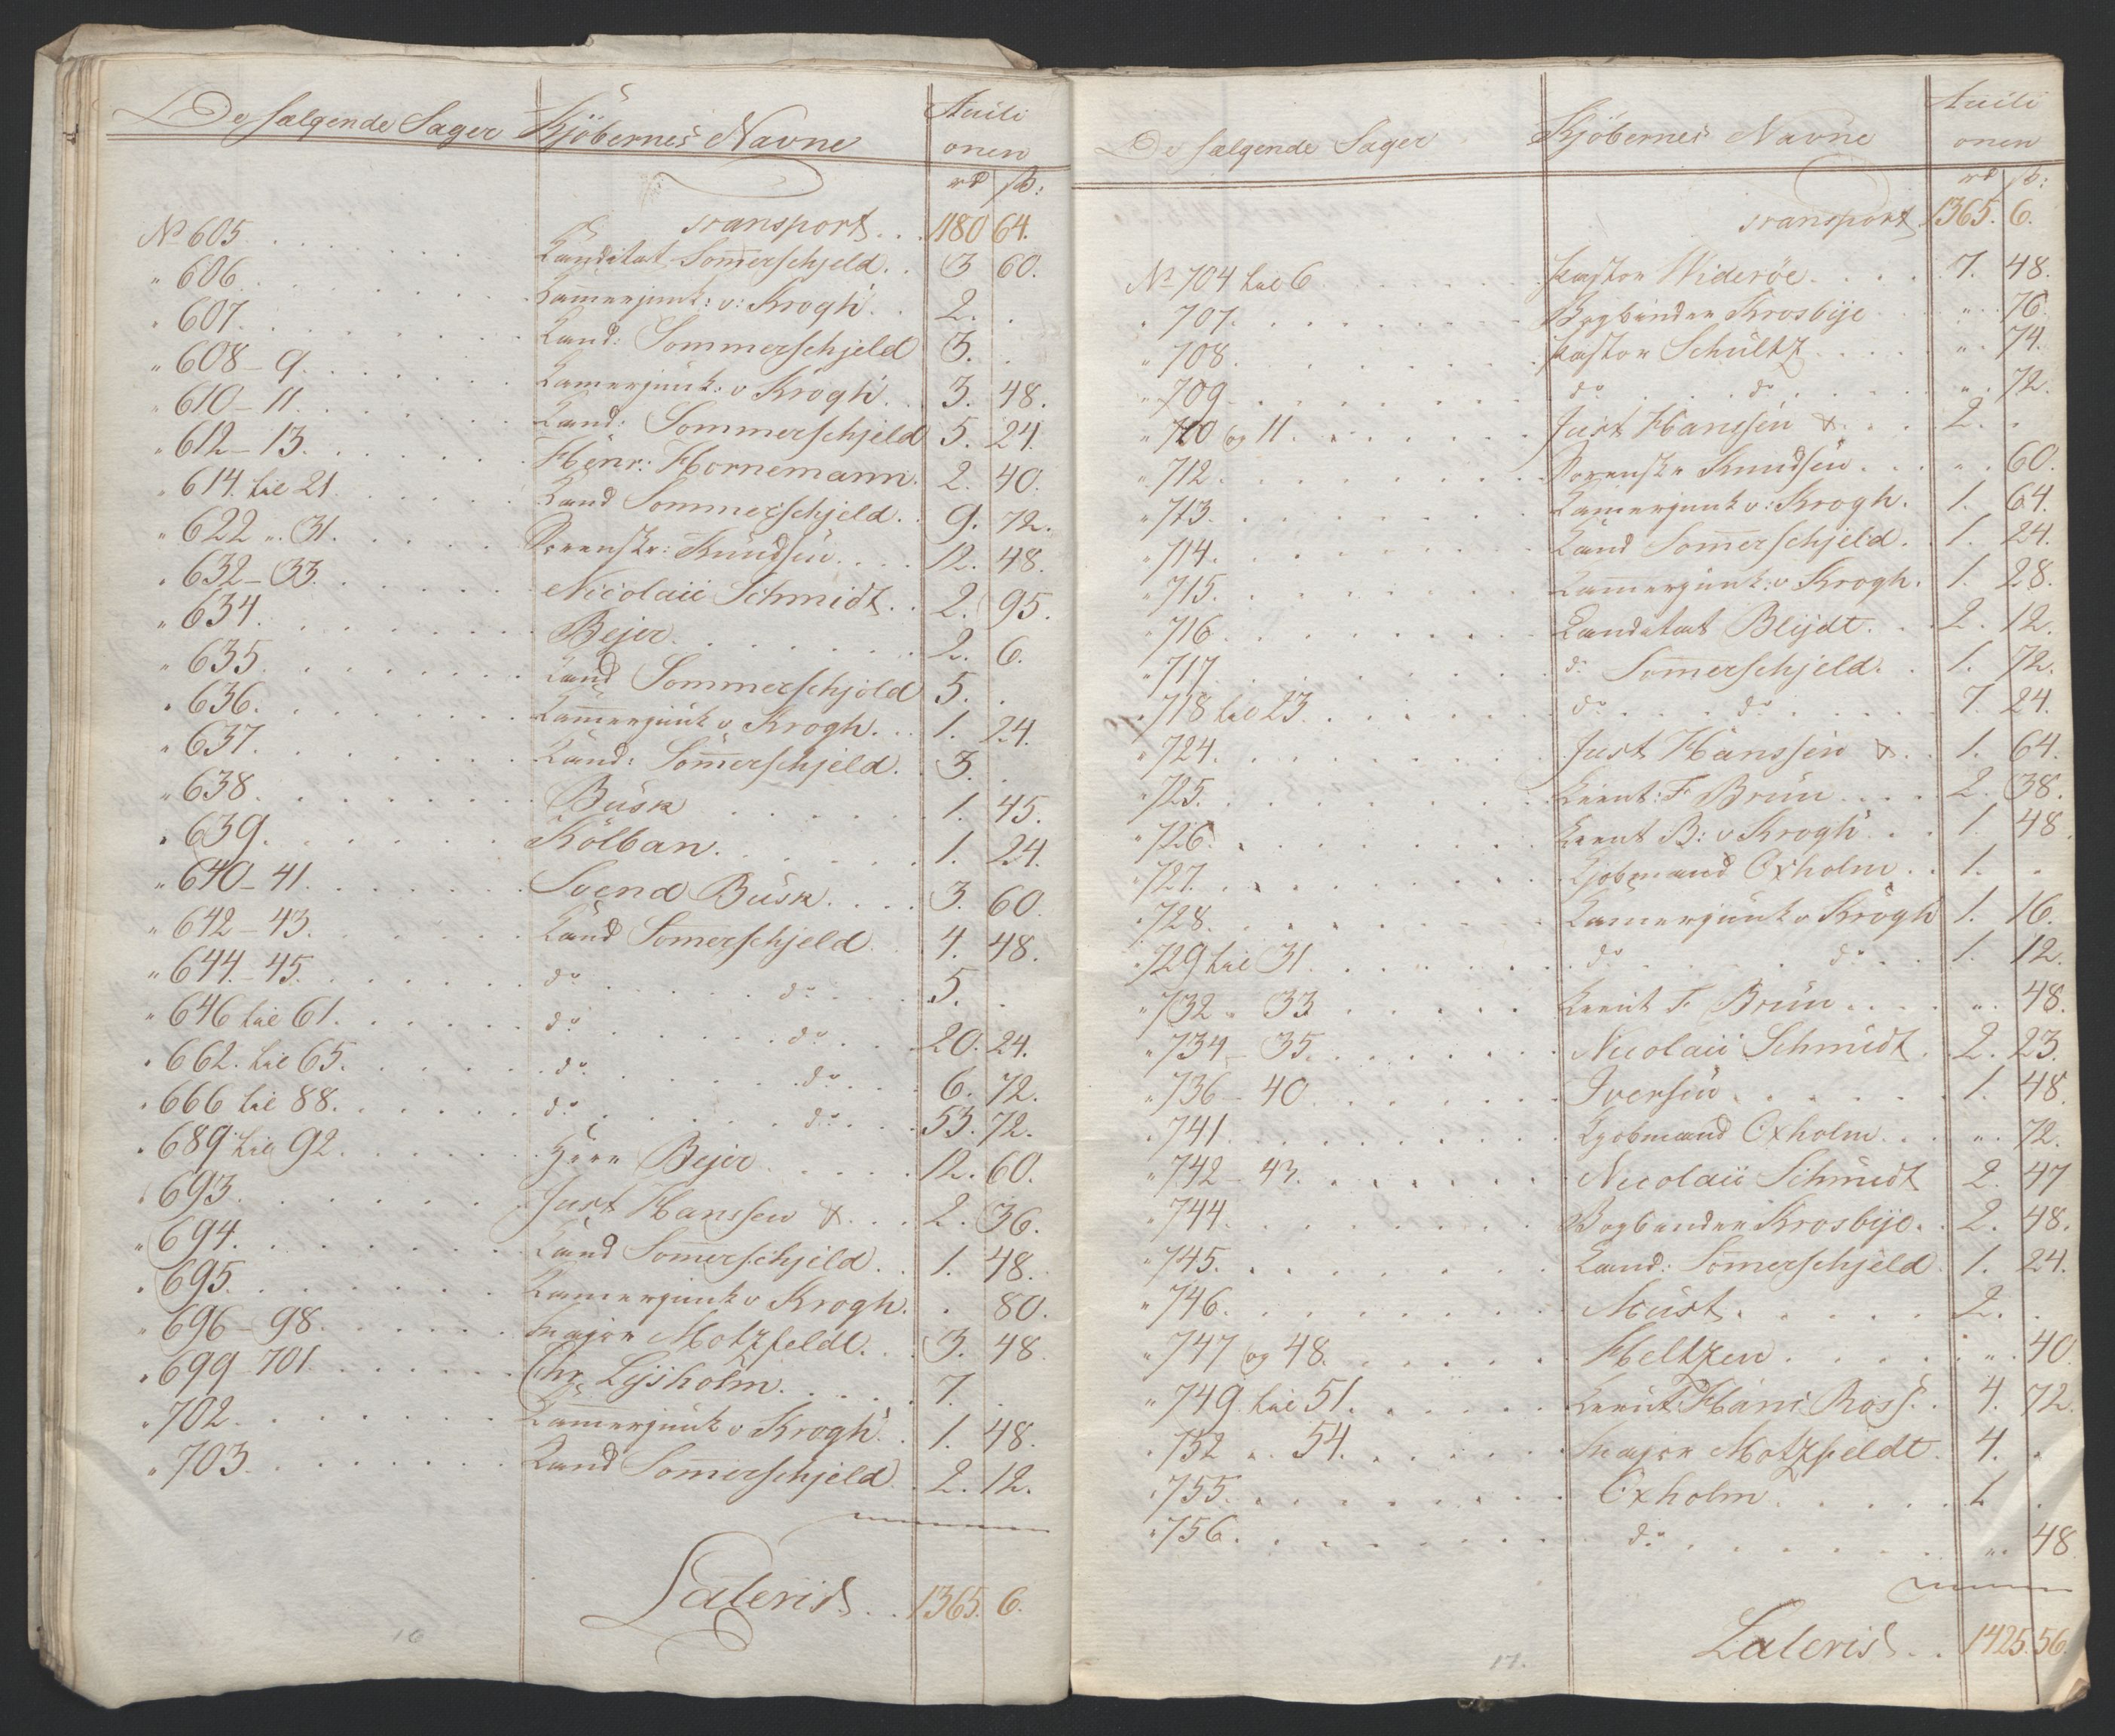 De sælgende Sager Kjöbernes Navne Auxili
onen
rd sk:
Transport. . . 1180 64.
No 605. Kanditat Som̅erschjeld. . 3 60.
" 606. Kam̅erjunk: v: Krogh. . 2. .
" 607. Kand: Sommerschjeld 3. .
" 608-9. Kamerjunk: v Krogh. . 3. 48.
" 610-11. Kand: Sommerschjeld 5. 24.
" 612-13. Henr: Hornemann. 2. 40.
" 614. til 21. Kand Sommerschjeld. . 9. 72.
" 622 ". 31. Sorenskr: Knudsen. . . . 12. 48.
" 632-33. Nicolaii Schmidt. . 2. 95.
" 634. Bejer. 2. 6.
" 635. Kand Sommerschjold 5. .
" 636. Kam̅erjunk v Krogh. . . 1. 24.
" 637. Kand: Som̅erschjeld. . 3. .
" 638. Busk 1. 45.
" 639. Kolban. 1. 24.
" 640-41. Svend Busk. . . . 3. 60.
" 642-43. Kand Somerschjeld. . 4. 48.
" 644.-45. do do 5. .
" 646 til 61. do do 20. 24.
" 662. til 65. do do 6. 72.
" 666 til 88. do do 53. 72.
" 689 til 92. Herr Bejer 12. 60.
" 693. Just Hanssen & . . . 2. 36.
" 694. Kand Som̅erschjeld. . 1. 48.
" 695. Kamerjunk v Krogh. . 80.
" 696-98. Major Motzfeldt. . . 3. 48.
" 699-701. Chr Lysholm. 7. .
" 702. Kam̅erjunk v Krogh. . 1. 48.
" 703. Kand Som̅erschjeld. . 2. 12.
Lateris. . 1365. 6.
16
De sælgende Sager Kjöbernes Navne Auxili
onen
rd sk:
Transport 1365. 6.
No 704 til 6 Pastor Widerøe. 7. 48.
" 707. Bogbinder Krosbye ". 76.
" 708. Pastor Schultz ". 74.
" 709 do do ". 72.
" 710 og 11. Just Hanssen & . . 2. .
" 712. Sorenskr Knudsen. ". 60.
" 713. Kamerjunk v: Krogh. 1. 64.
" 714. Kand Som̅erschjeld. . 1. 24.
" 715. Kam̅erjunk: v Krogh. 1. 28.
" 716. Kanditat Blijdt. 2. 12.
" 717. do Som̅erschjeld. . 1. 72.
" 718 til 23. do do 7. 24.
" 724. Just Hanssen & . . 1. 64.
" 725. Lieut: F Brun. 2. 38.
" 726. Lieut B: v Krogh. 1. 48.
" 727. Kjobmand Oxholm. . 1. .
" 728. Kamerjunk v Krogh 1. 16.
" 729 til 31. do do 1. 12.
" 732 " 33 Lieut F Brun ". 48.
" 734-35. Nicolaii Schmidt. 2. 23.
" 736-40 Iversen 1. 48.
" 741. Kjobmand Oxholm. ". 72.
" 742-43. Nicolaii Schmidt 2. 47
" 744. Bogbinder Krosbye. . 2. 48.
" 745. Kand: Som̅erschjeld. 1. 24.
" 746. Must. 2. .
" 747 og 48. Heltzen. ". 40.
" 749. til 51. Lieut Hans Ross. . 4. 72.
" 752 " 54. Major Motzfeldt. 4. .
" 755. Oxholm. 1. .
" 756. do ". 48.
Lateris. . 1425. 56.
17.